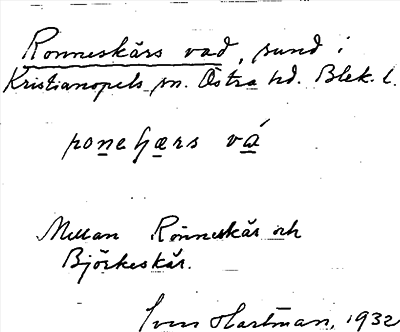 Ronneskärs vad, sund i
Kristianopels sn. Östra hd. Blek. l.
vá
Mellan Rönneskär och
Björkeskär.
Sven Hartman, 1932